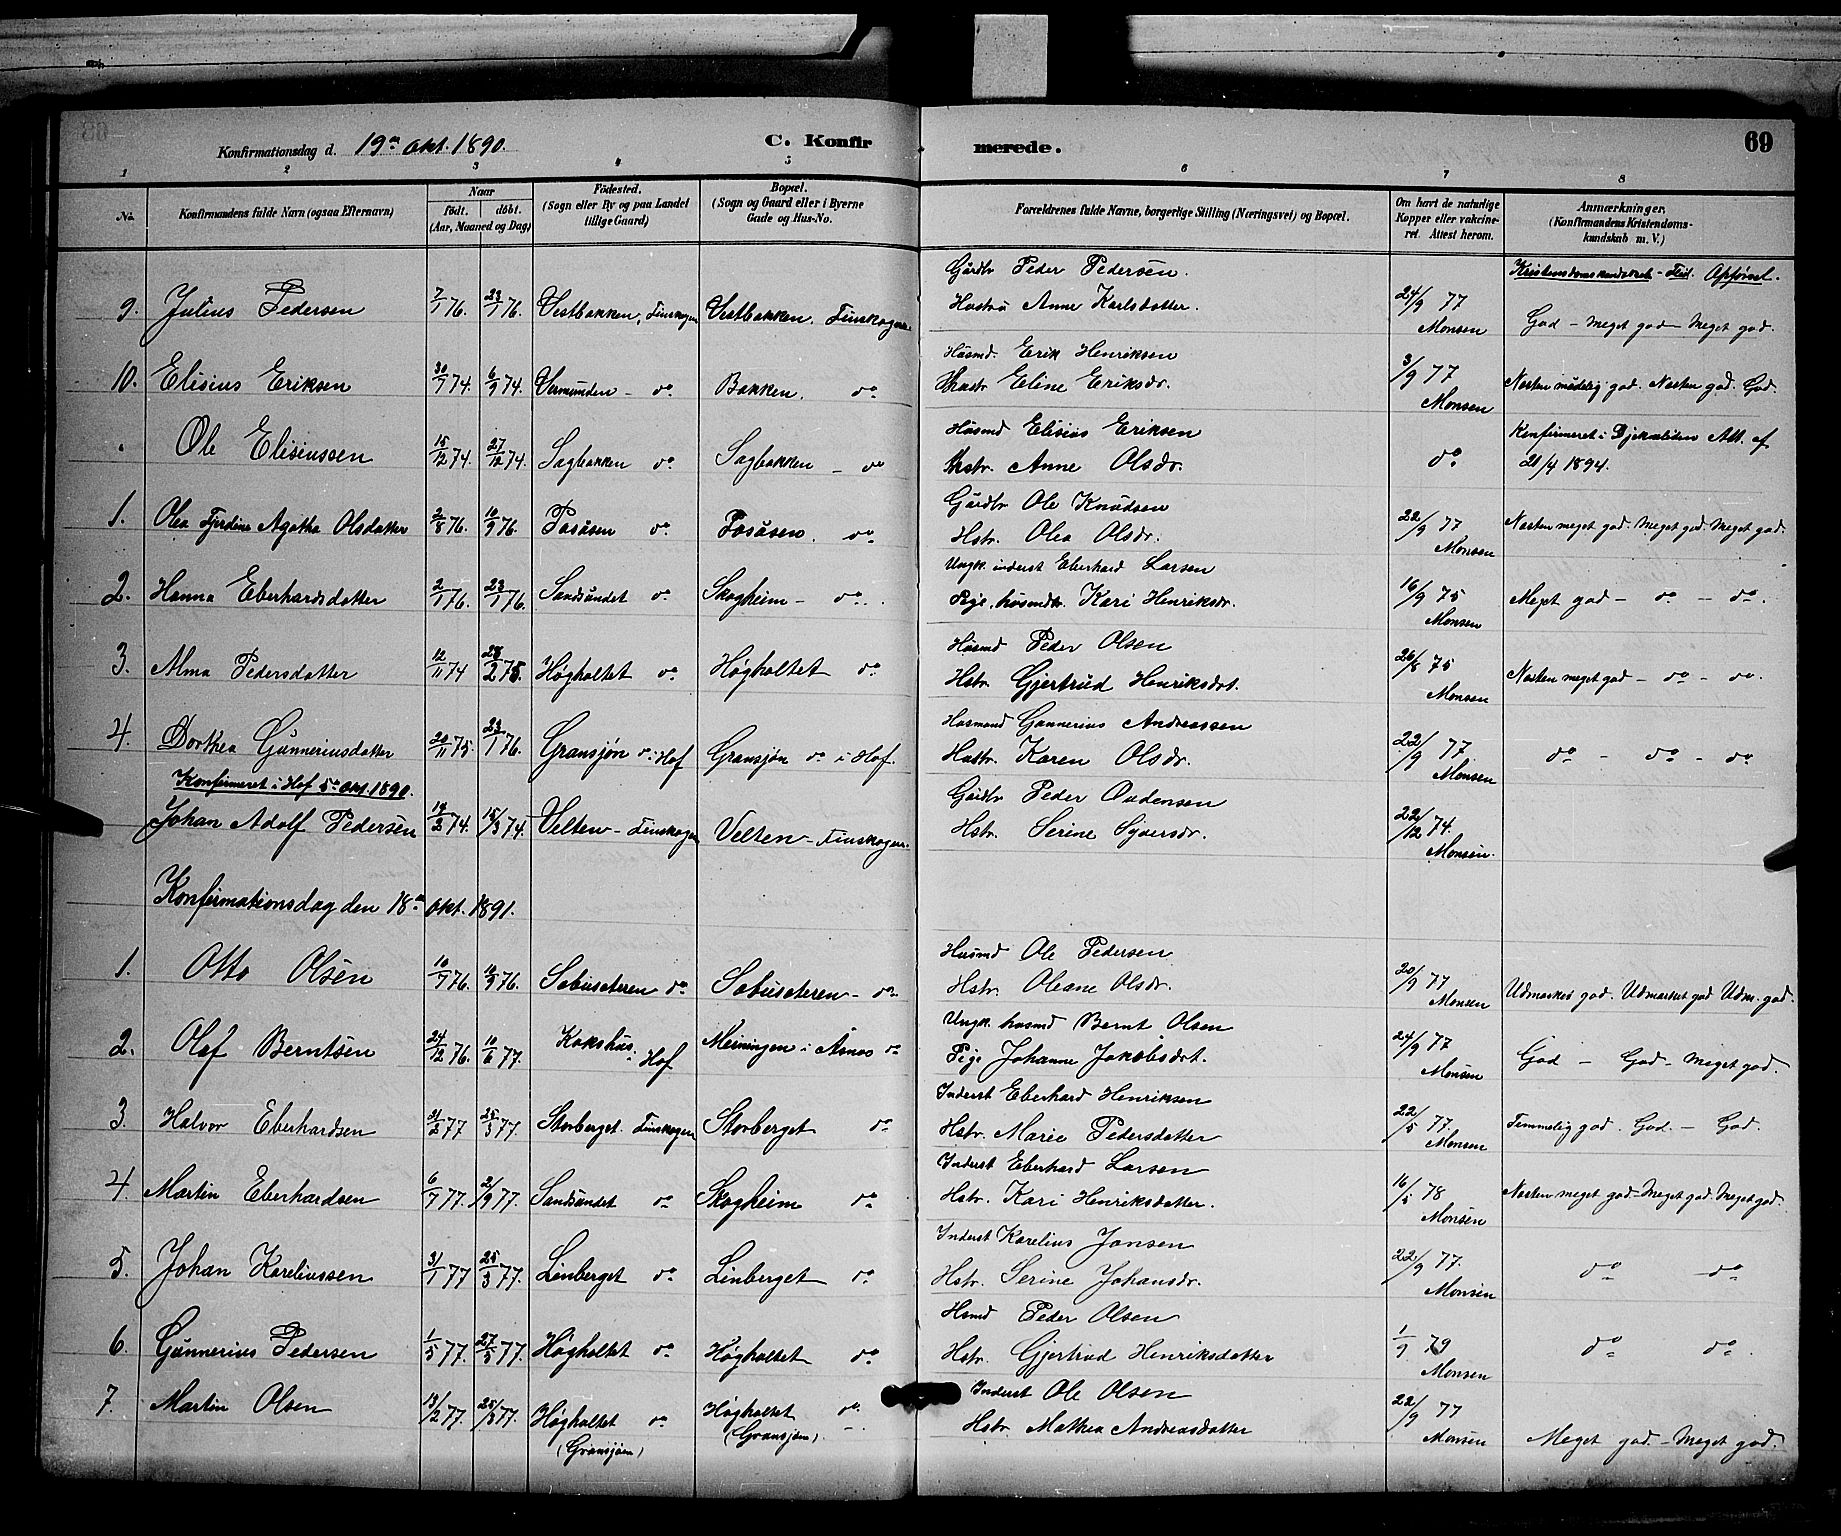 Konfirmationsdag d. 19de Okt. 1890. C. Konfirmerede. 69
1 2 3 4 5 6 7 8
No. Konfirmandens fulde Navn (ogsaa Efternavn) Naar født. døbt. (Aar, Maaned og Dag) Fødested. (Sogn eller By og paa Landet tillige Gaard) Bopæl. (Sogn og Gaard eller i Byerne Gade og Hus-No. Forældrenes fulde Navne, borgerlige Stilling (Næringsvei) og Bopæl. Om havt de naturlige Kopper eller vakcineret. Attest herom. Anmærkninger. (Konfirmandens Kristendomskundskab m. V.)
Gårdbr Peder Pedersen. Kristendomskundskab - Flid. Opførsel.
9. Julius Pedersen 7/1 76. 23/1 76. Vestbakken, Finskogen Vestbakken. Finskogen. Hustru Anne Karlsdatter. 24/9 77 Monsen God - Meget god - Meget god.
Husmd. Erik Henriksen
10. Elisius Eriksen 30/7 74. 6/9 74. Vermunden - do Bakken. do Hustr. Eline Eriksdr. 3/9 77 Monsen Næsten mådelig god. Næsten god. God.
Husmd Elisius Eriksen Konfirmeret i Att. af
Ole Elisiussen 15/12 74. 27/12 74. Sagbakken do Sagbakken - do Hustr. Anne Olsdr. do 21/4 1894.
Gårdbr Ole Knudsen
1. Olea Agatha Olsdatter 2/8 76. 10/9 76. Posåsen do Posåsen. do Hstr. Olea Olsdr. 22/9 77 Monsen Næsten meget god. Meget god. Meget god.
Ungk. inderst Eberhard Larsen
2. Hanna Eberhardsdatter 2/1 76. 23/1 76. Sandsundet do Skogheim - do Pige, Kari Henriksdr. 16/9 75 Monsen Meget god - do - do.
Husmd Peder Olsen
3. Alma Pedersdatter 12/11 74 28/2 75. Högholtet do Högholtet do Hstr. Gjertrud Henriksdat. 26/8 75 Monsen Næsten meget god - do - do.
Husmand Gunnerius Andreassen
4. Dorthea Gunneriusdatter 20/11 75. 23/1 76. Gransjøn do i Hof Gransjøn do i Hof. Hustr. Karen Olsdr. 22/9 77. Monsen do - do - do
Konfirmeret i Hof 5te Okt. 1890.
Gårdbr Peder Audensen
Johan Adolf Pedersen 14/2 74. 15/3 74. Velten - Finskogen Velten - Finskogen. Hstr. Serine Syversdr. 22/12 74. Monsen.
Konfirmationsdag den 18de Okt. 1891.
Husmd Ole Pedersen
1. Otto Olsen 10/7 76. 10/9 76. Sæbusæteren do Sæbusæteren - do Hstr. Oleane Olsdr. 20/9 77 Monsen Udmærket god. Udmærket god Udm. god.
Ungk. husmd Bernt Olsen
2. Olaf Berntsen 24/12 76. 10/6 77. Kokshus i Hof i Åsnes do Pige Johanne Jakobsdat. 24/9 77 Monsen God - God - Meget god.
Inderst Eberhard Henriksen
3. Halvor Eberhardsen 21/2 77 25/3 77. Storberget. Finskogen Storberget do Hstr. Marie Pedersdatter 22/5 77. Monsen Temmelig god. God. - God.
Inderst Eberhard Larsen
4. Martin Eberhardsen 6/7 77. 2/9 77. Sandsundet do Skogheim do Hstr. Kari Henriksdatter. 16/5 78 Monsen Næsten meget god - Meget god. Meget god.
Inderst Karelius Jansen
5. Johan Kareliussen 31/1 77 25/3 77. Linberget do Linberget do Hstr. Serine Johansdr. 22/9 77. Monsen do - do
Hsmd Peder Olsen
6. Gunnerius Pedersen 1/5 77. 27/5 77. Högholtet do Högholtet do Hstr. Gjertrud Henriksdatter 1/9 79 Monsen do do.
Inderst Ole Olsen
7. Martin Olsen 13/2 77. 25/3 77. Högholtet do Högholtet do Hstr. Mathea Andreasdatter 22/9 77 Monsen Meget god - Meget god.
(Gransjøen) (Gransjøen).